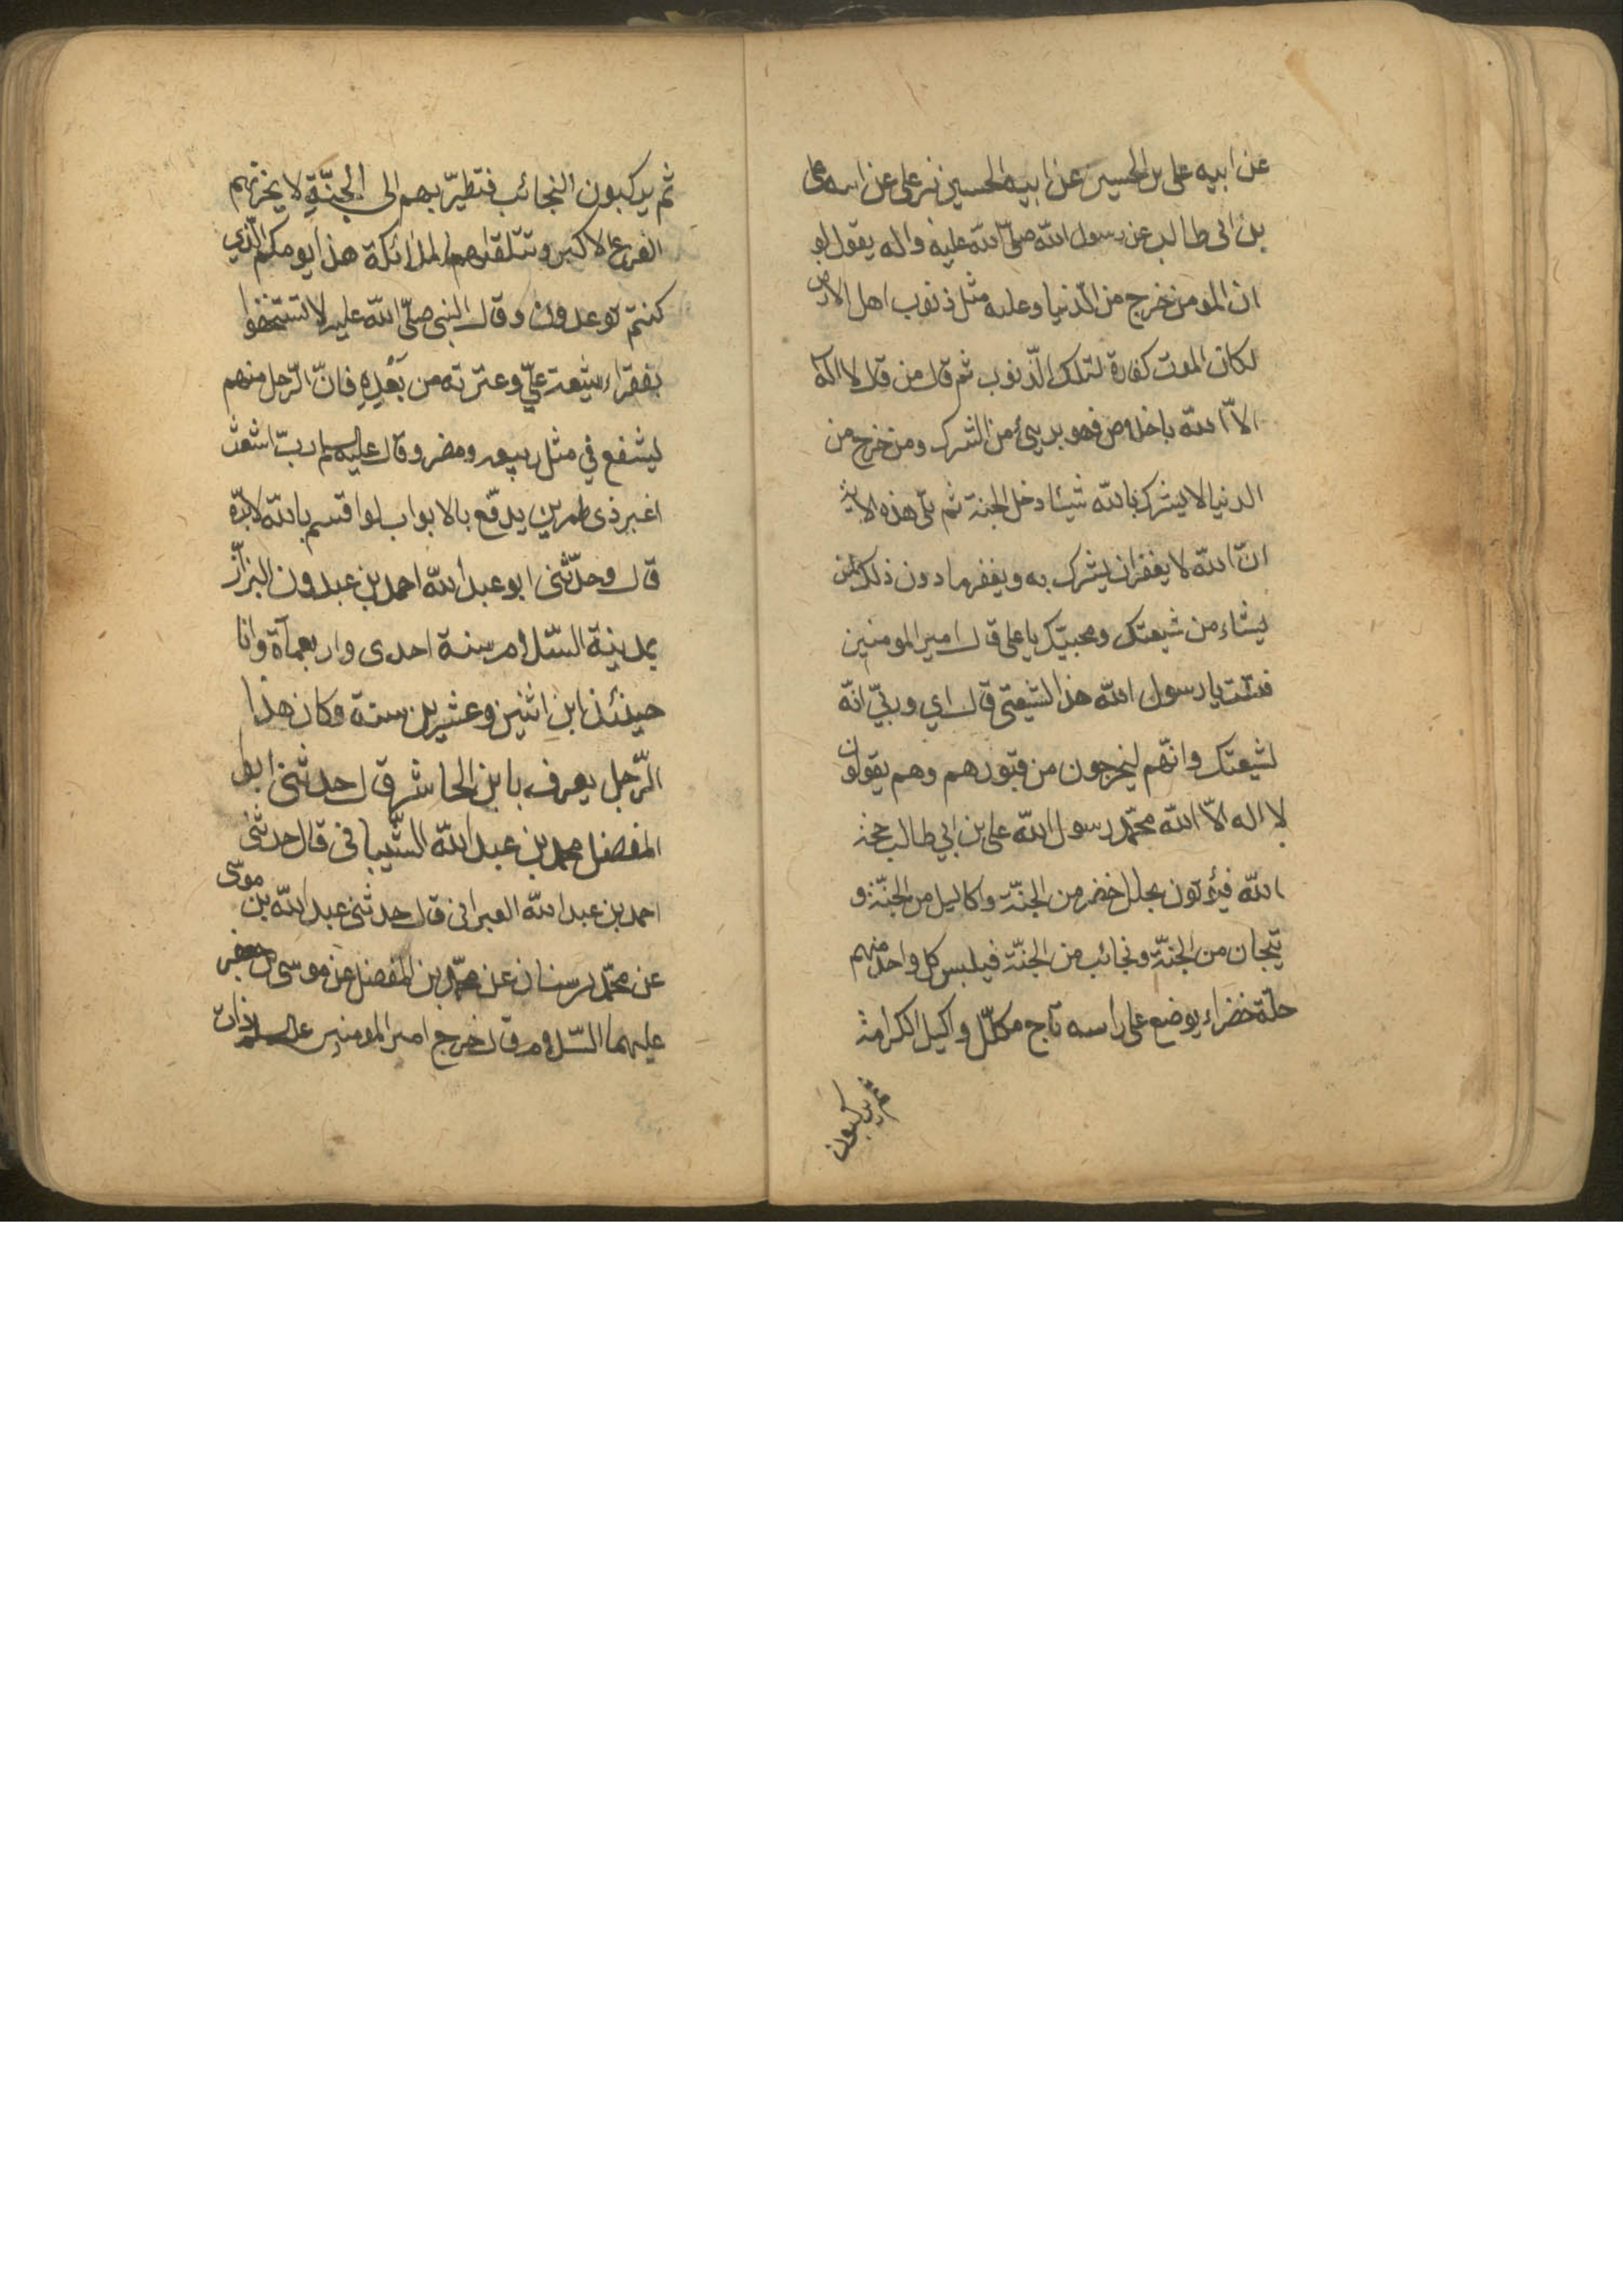 عن ابيه علي بن الحسين عن ابيه الحسين بن علي عن ابيه علي
بن ابي طالب عن رسول الله صلّى الله عليه واله يقول لو
ان المومن خرج من الدّنيا وعليه مثل ذنوب اهل الارض
لكان الموت كفارة لتلك الذّنوب ثم قال من قال لا اله
الاّ الله باخلاص فهو بريئ من الشرك ومن خرج من
الدنيا لا يشرك بالله شيئا دخل الجنة ثم تلى هذه الاية
انّ الله لا يغفر ان يشرك به ويغفر ما دون ذلك لمن
يشاء من شيعتك ومحبيّك يا علي قال امير المومنين
فقلت يا رسول الله هذا لشيعتي قال اي وربيّ انّه
لشيعتك وانّهم ليخرجون من قبورهم وهم يقولون
لا اله الاّ الله محمّد رسول الله علي بن ابي طالب حجة
الله فيؤتون بحلل خضر من الجنّة واكاليل من الجنّة و
تيجان من الجنّة ونجائب من الجنّة فيلبس كل واحد منهم
حلّة خضراء يوضع على راسه تاج مكلّل واكيل الكرامة
ثم يركبون
ثم يركبون النجائب فتطيرّ بهم الى الجنّةِ لا يحزنهم
الفزع الاكبر وتتلقاهم الملائكة هذا يومكم الّذي
كنتم توعدون وقال النبي صلّى الله عليه لا تستخفوا
بفقراء شيعة عليّ وعترته من بَعْدِهِ فانّ الرّجل منهم
ليشفع في مثل ربيعه ومضر وقال عليه السلم ربّ اشعث
اغبر ذى طمرين يدفّع بالابواب لو اقسم بالله لابرّه
قال وحدّثني ابو عبد الله احمد بن عبدون البزاّز
بمدينة السّلام سنة احدى واربعماة وانا
حينئذ ابن اثنين وعشرين سنة وكان هذا
الرّجل يعرف بابن الحاشر قال حدثني ابو
المفضل محمد بن عبد الله الشّيباني قال حدثني
احمد بن عبد الله العبراني قال حدثني عبد الله بن موسى
عن محمّد بن سنان عن محمّد بن المفضل عن موسى بن جعفر
عليهما السّلام قال خرج امير المومنين عليه السلام ذات